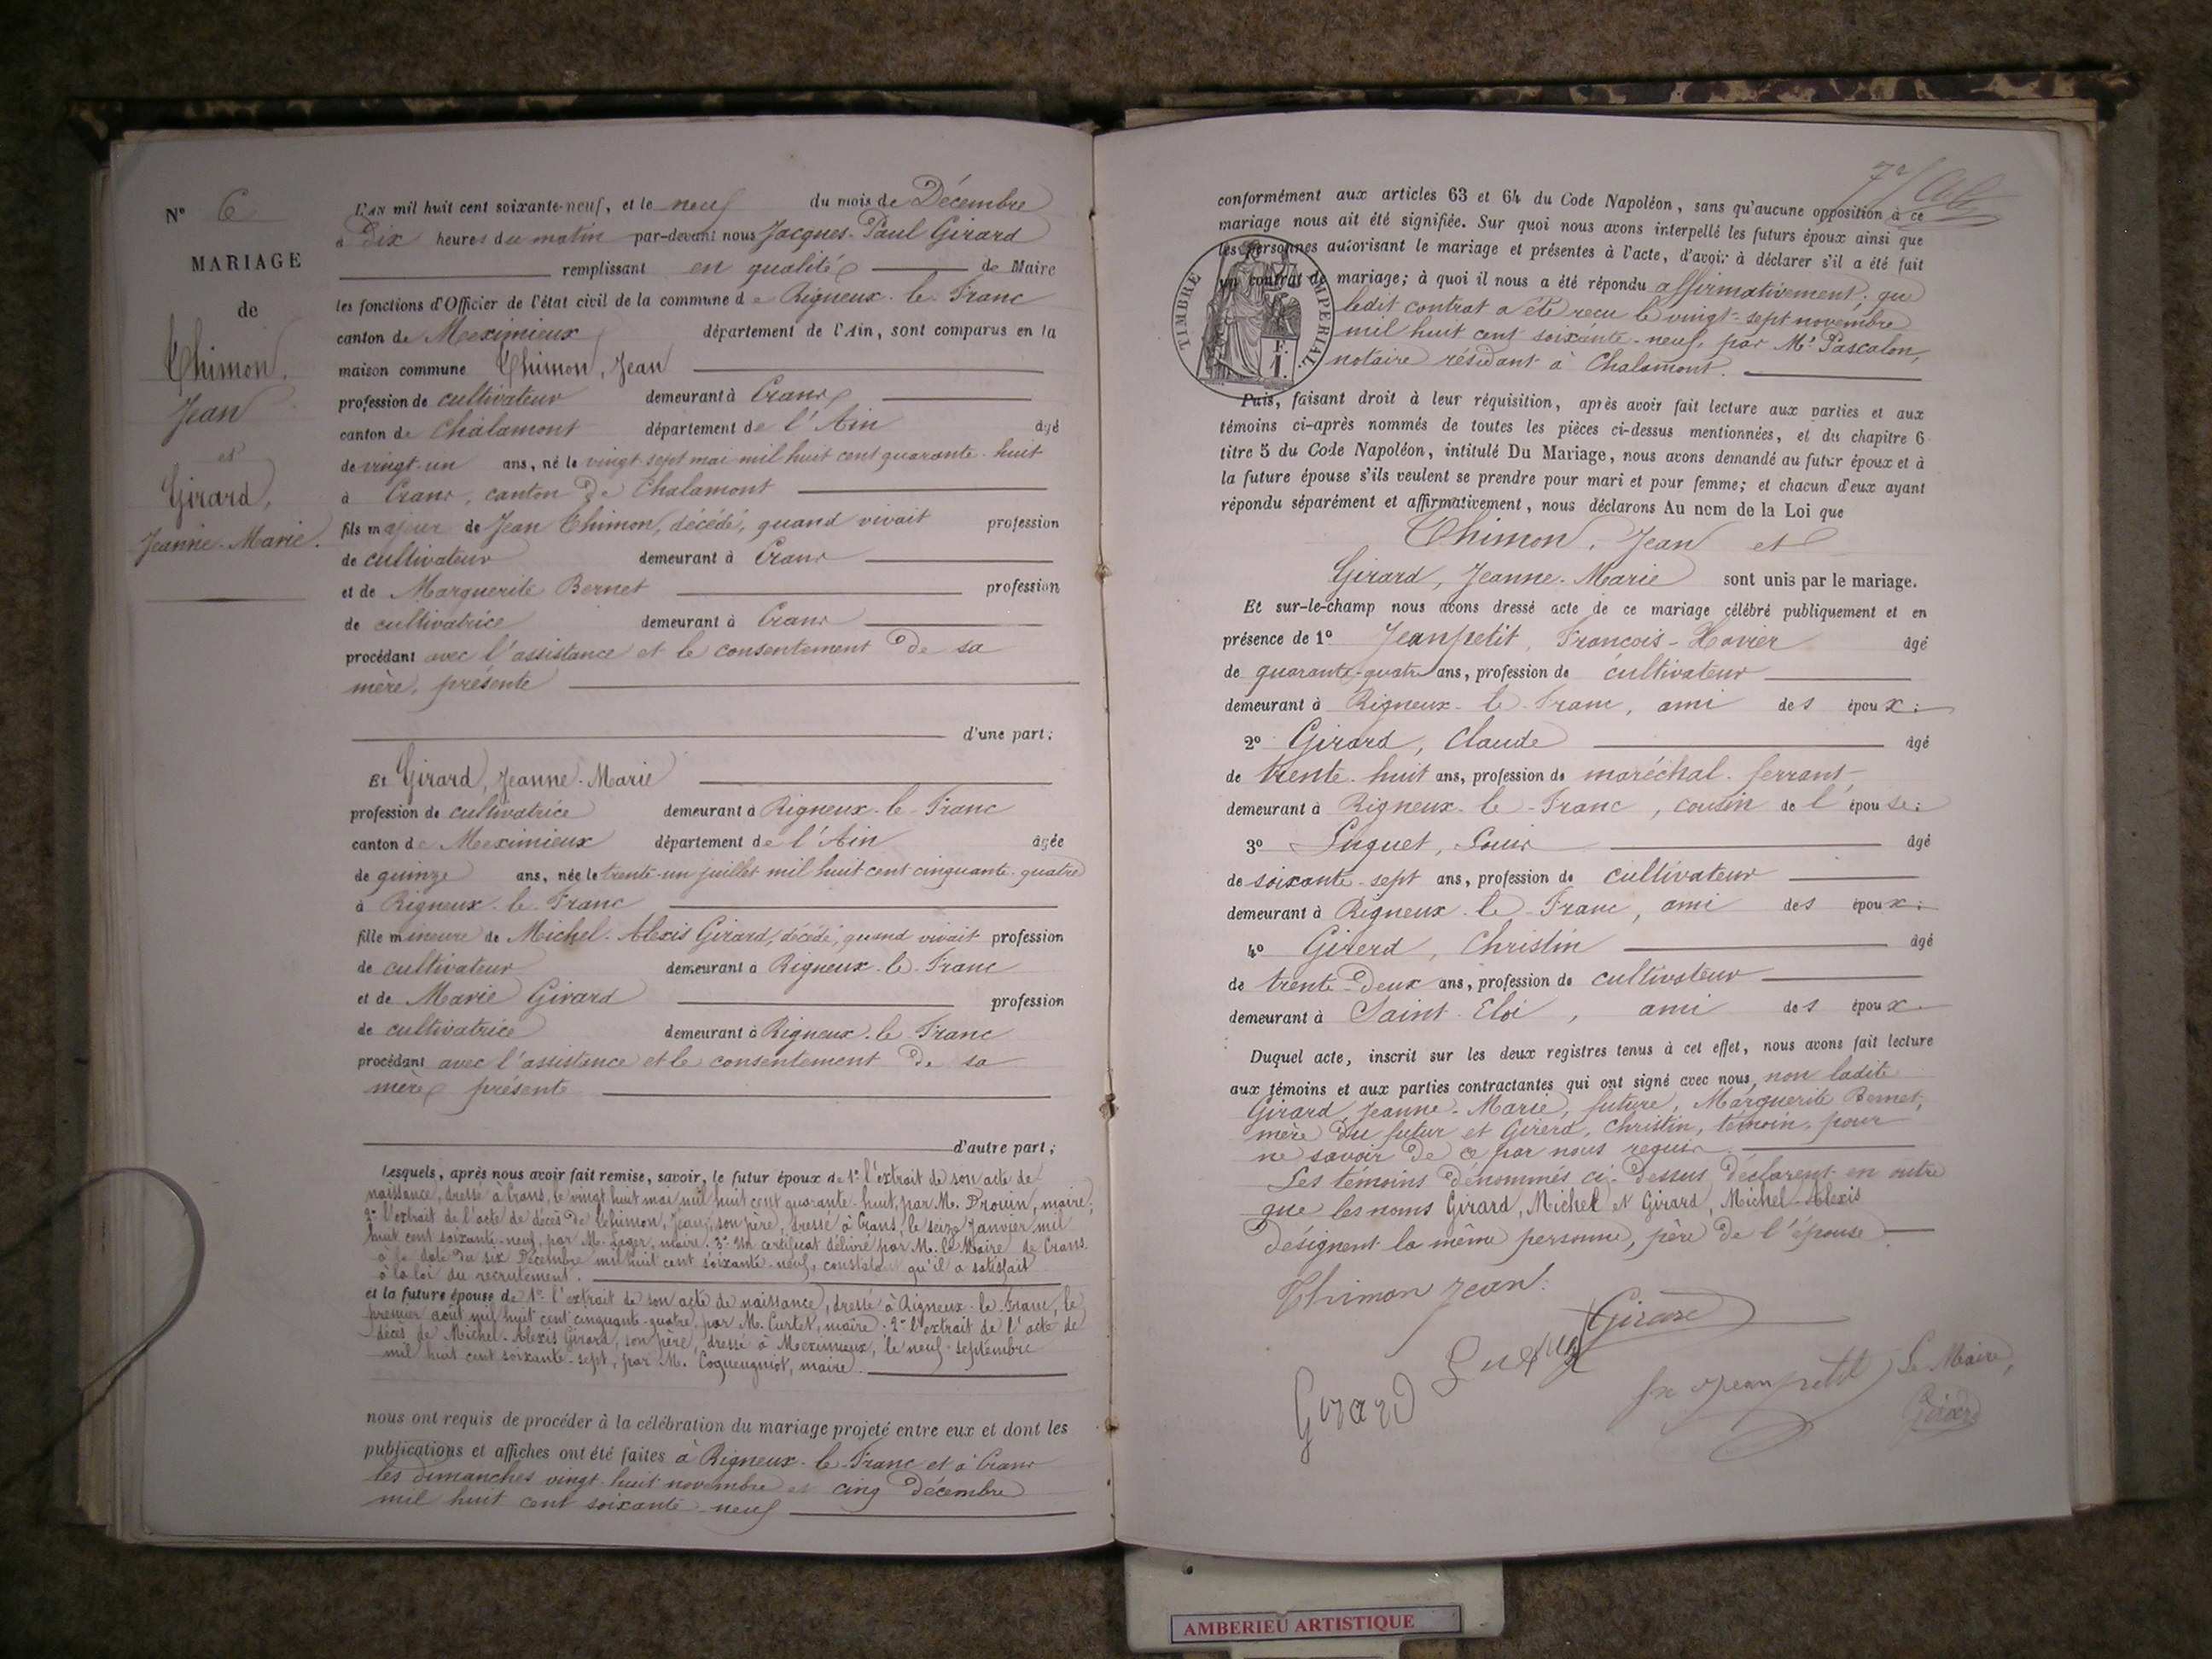 N° 6
MARIAGE
de
Thimon,
Jean
et
Girard,
Jeanne-Marie.
L'AN mil huit cent soixante-neuf, et le neuf du mois de Décembre
à Dix heures du matin par-devant nous Jacques-Paul Girard
remplissant en qualité de Maire
les fonctions d'Officier de l'état civil de la commune de Rigneux-le-Franc
canton de Meximieux département de l'Ain, sont comparus en la
maison commune Thimon, Jean
profession de cultivateur demeurant à Crans
canton de Chalamont département de l'Ain âgé
de vingt-un ans, né le vingt-sept mai mil huit cent quarante-huit
à Crans, canton de Chalamont
fils majeur de Jean Thimon, décédé, quand vivait profession
de cultivateur demeurant à Crans
et de Marguerite Bernet profession
de cultivatrice demeurant à Crans
procédant avec l'assistance et le consentement de sa
mère, présente
d'une part;
Et Girard, Jeanne-Marie
profession de cultivatrice demeurant à Rigneux-le-Franc
canton de Meximieux département de l'Ain âgée
de quinze ans, née le trente-un juillet mil huit cent cinquante-quatre
à Rigneux-le-Franc
fille mineure de Michel-Alexis Girard, décédé, quand vivait profession
de cultivateur demeurant à Rigneux-le-Franc
et de Marie Girard profession
de cultivatrice demeurant à Rigneux-le-Franc
procédant avec l'assistance et le consentement de sa
mère présente
d'autre part;
Lesquels, après nous avoir fait remise, savoir, le futur époux de 1° l'extrait de son acte de
naissance, dressé à Crans, le vingt huit mai mil huit cent quarante-huit, par M. Drouin, maire;
2° l'extrait de l'acte de décès de Thimon, Jean, son père, dressé à Crans, le seize Janvier mil
huit cent soixante-neuf, par M. Liger, maire. 3° Un certificat délivré par M. le Maire de Crans
à la date du six Décembre mil huit cent soixante-neuf, constatant qu'il a satisfait
à la loi du recrutement.
et la future épouse de 1° l'extrait de son acte de naissance, dressé à Rigneux-le-Franc, le
premier août mil huit cent cinquante-quatre, par M. Curtet, maire. 2° l'extrait de l'acte de
décès de Michel-Alexis Girard, son père, dressé à Meximieux, le neuf septembre
mil huit cent soixante-sept, par M. Coqueugniot, maire.
nous ont requis de procéder à la célébration du mariage projeté entre eux et dont les
publications et affiches ont été faites à Rigneux-le-Franc et à Crans
les dimanches vingt-huit novembre et cinq Décembre
mil huit cent soixante-neuf
conformément aux articles 63 et 64 du Code Napoléon, sans qu'aucune opposition à ce
mariage nous ait été signifiée. Sur quoi nous avons interpellé les futurs époux ainsi que
les personnes autorisant le mariage et présentes à l'acte, d'avoir à déclarer s'il a été fait
un contrat de mariage; à quoi il nous a été répondu affirmativement; que
ledit contrat a été reçu le vingt-sept novembre
mil huit cent soixante-neuf, par Me Pascalon,
notaire résidant à Chalamont.
TIMBRE IMPERIAL
F.
1.
Puis, faisant droit à leur réquisition, après avoir fait lecture aux parties et aux
témoins ci-après nommés de toutes les pièces ci-dessus mentionnées, et du chapitre 6
titre 5 du Code Napoléon, intitulé Du Mariage, nous avons demandé au futur époux et à
la future épouse s'ils veulent se prendre pour mari et pour femme; et chacun d'eux ayant
répondu séparément et affirmativement, nous déclarons Au nom de la Loi que
Thimon, Jean et
Girard, Jeanne-Marie sont unis par le mariage.
Et sur-le-champ nous avons dressé acte de ce mariage célébré publiquement et en
présence de 1° Jeanpetit, François-Xavier âgé
de quarante-quatre ans, profession de cultivateur
demeurant à Rigneux-le-Franc, ami des époux;
2° Girard, Claude âgé
de trente-huit ans, profession de maréchal-ferrant,
demeurant à Rigneux-le-Franc, cousin de l'épouse;
3° Luquet, Louis âgé
de soixante-sept ans, profession de cultivateur
demeurant à Rigneux-le-Franc, ami des époux;
4° Girerd, Christin âgé
de trente-deux ans, profession de cultivateur
demeurant à Saint-Eloi, ami des époux.
Duquel acte, inscrit sur les deux registres tenus à cet effet, nous avons fait lecture
aux témoins et aux parties contractantes qui ont signé avec nous, non ladite
Girard, Jeanne-Marie, future, Marguerite Bernet,
mère du futur et Girerd, Christin, témoin, pour
ne savoir de ce par nous requis.
Les témoins dénommés ci-dessus déclarent en outre
que les noms Girard, Michel et Girard, Michel-Alexis
désignent la même personne, père de l'épouse
Thimon Jean.
Girard
Luquet
Girard
fx Jeanpetit
Le Maire,
Girard
AMBERIEU ARTISTIQUE